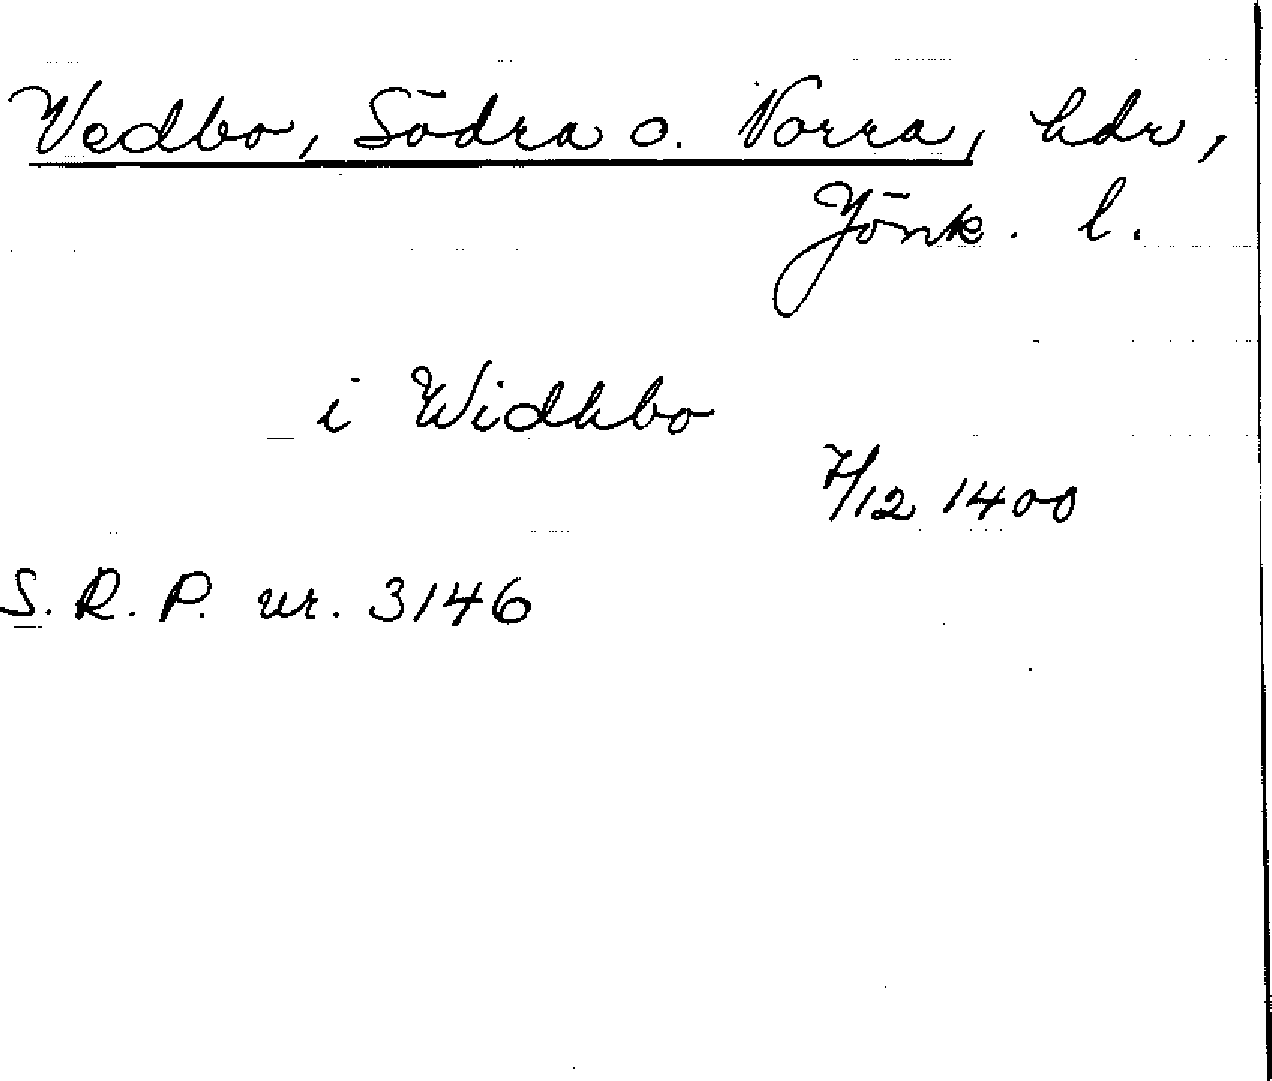 Vedbo, Södra o. Norra, hdr,
Jönk. l.
i Widhbo
7/12 1400
S. R. P. nr. 3146